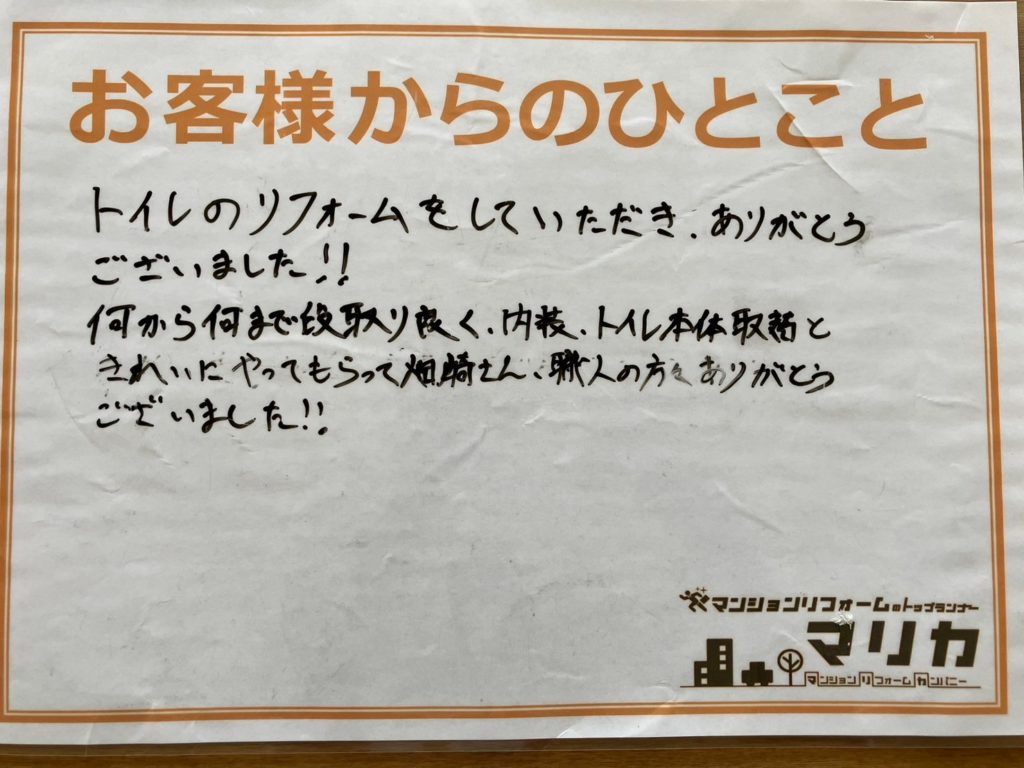 お客様からのひとこと
トイレのリフォームをしていただき、ありがとう
ございました!!
何から何まで段取り良く、内装、トイレ本体取替と
きれいにやってもらって畑崎さん、職人の方々ありがとう
ございました!!
マンションリフォームのトップランナー
マリカ
マンションリフォームカンパニー